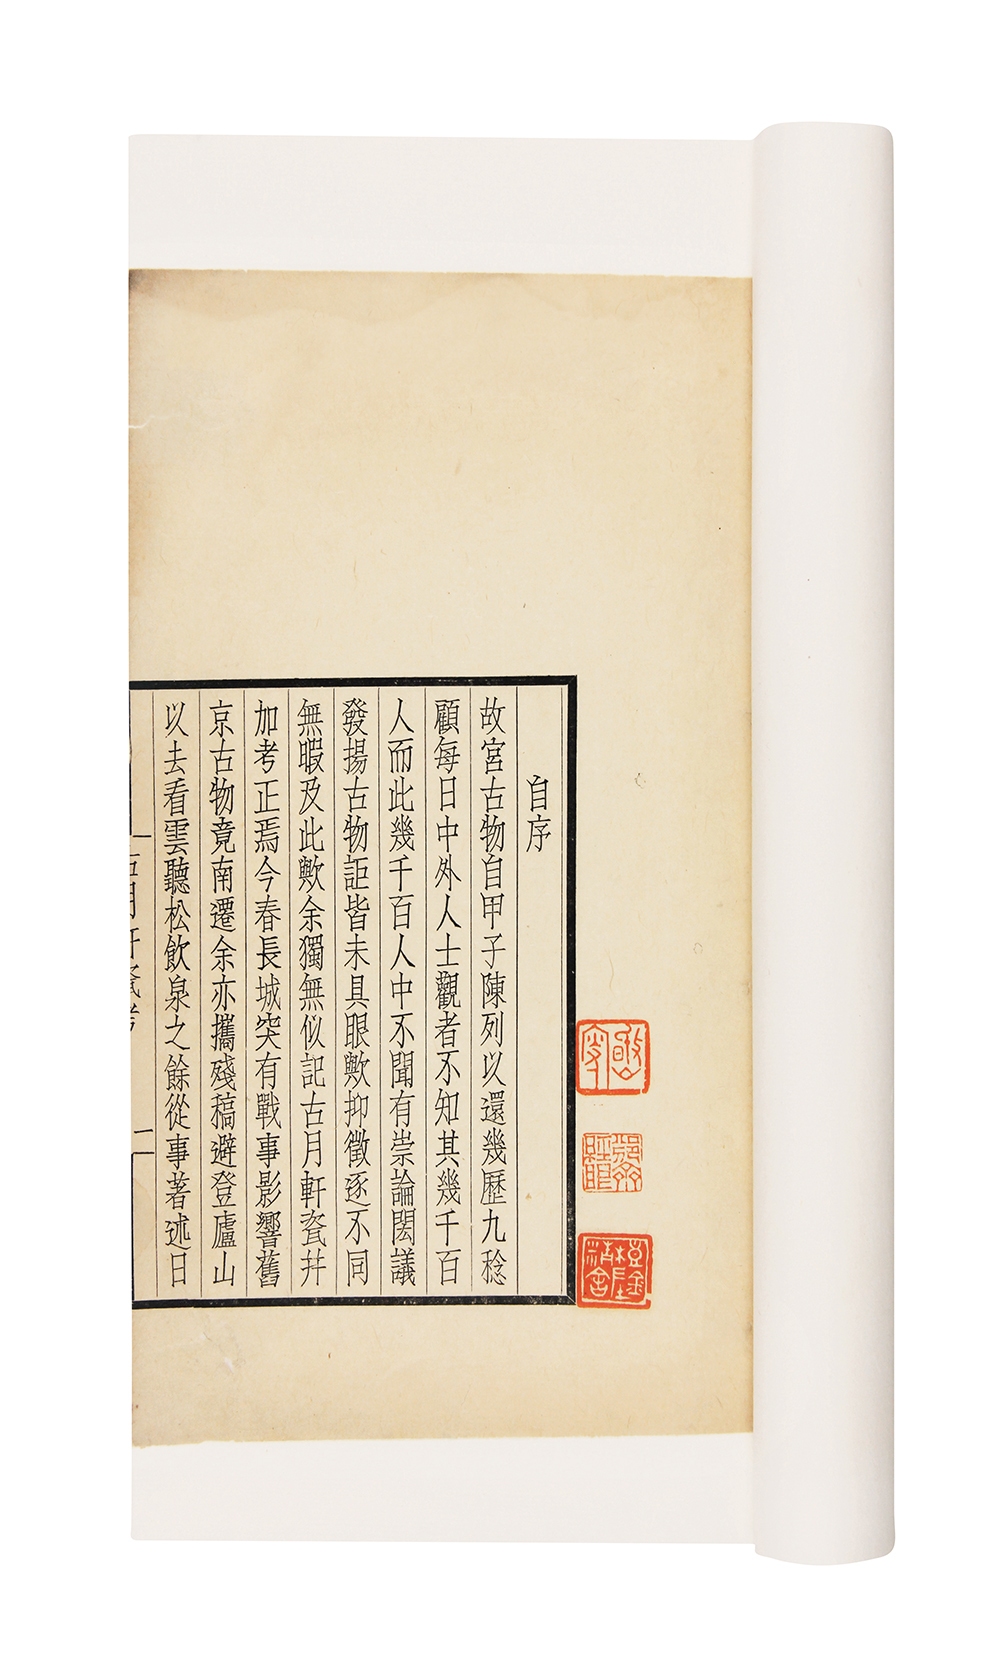 自序
故宮古物自甲子陳列以還幾歷九稔
顧每日中外人士觀者不知其幾千百
人而此幾千百人中不聞有崇論閎議
發揚古物詎皆未具眼歟抑徵逐不同
無暇及此歟余獨無似記古月軒瓷幷
加考正焉今春長城突有戰事影響舊
京古物竟南遷余亦攜殘稿避登廬山
以去看雲聽松飲泉之餘從事著述日